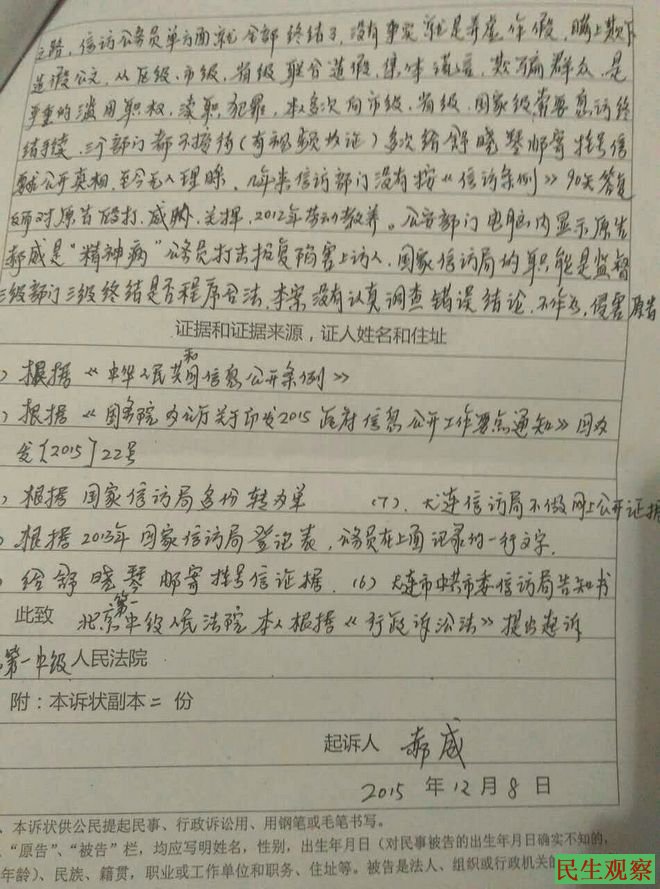 之路，信访公务员单方面就全部终结了，没有事实就是弄虚作假，瞒上欺下
造假公文，从区级、市级，省级联合造假，集体谎言，欺骗群众，是
严重的滥用职权，渎职犯罪，本人多次向市级、省级、国家级索要息访终
结手续，三个部门都不接待（有视频收证）多次给舒晓琴邮寄挂号信
要求公开真相，至今无人理睬，几年来信访部门没有按《信访条例》90天答复
反而对原告殴打、威胁、关押，2012年劳动教养。公安部门电脑内显示原告
郝威是"精神病"公务员打击报复陷害上访人，国家信访局的职能是监督
三级部门三级终结是否程序合法，本案没有认真调查错误结论，不作为，侵害原告
证据和证据来源，证人姓名和住址
）根据《中华人民共和国信息公开条例》
）根据《国务院办公厅关于印发2015政府信息公开工作要点通知》国办
发〔2015〕22号
）根据国家信访局多份转办单 （7）、大连信访局不做网上公开证据
）根据2013年国家信访局登记表，公务员在上面记录的一行文字，
）给舒晓琴邮寄挂号信证据，（6）大连市中共市委信访局告知书
此致 北京第一中级人民法院本人根据《行政诉讼法》提出起诉
第一中级人民法院
附：本诉状副本二份
起诉人 郝威
2015年12月8日
、本诉状供公民提起民事、行政诉讼用、用钢笔或毛笔书写。
、"原告"、"被告"栏，均应写明姓名，性别，出生年月日（对民事被告的出生年月日确实不知的，
年龄）、民族、籍贯，职业或工作单位和职务、住址等。被告是法人、组织或行政机关的
民生观察